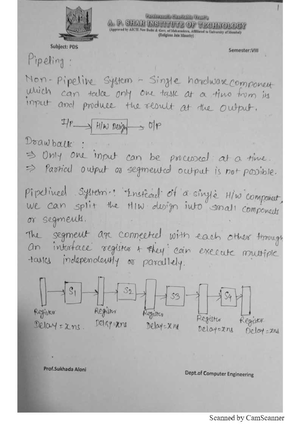 Parshvanath Charitable Trust's
A. P. SHAH INSTITUTE OF TECHNOLOGY
(Approved by AICTE New Delhi & Govt. of Maharashtra, Affiliated to University of Mumbai)
(Religious Jain Minority)
Subject: PDS
Semester:VIII
1
Pipeling :
Non-Pipeline System - Single hardware component
which can take only one task at a time from its
input and produce the result at the output.
I/P H/W Design O/P
Drawback :
⇒ Only one input can be processed at a time.
⇒ Partial output or segmented output is not possible.
Pipelined System - Instead of a single H/W component,
we can split the H/W design into small components
or segments.
The segment are connected with each other through
an interface register & they can execute multiple
tasks independently or parallely.
S1 S2 S3 S4
Register Register Register Register Register
Delay=xns Delay=xns Delay=xns Delay=xns Delay=xns
Prof.Sukhada Aloni
Dept.of Computer Engineering
Scanned by CamScanner